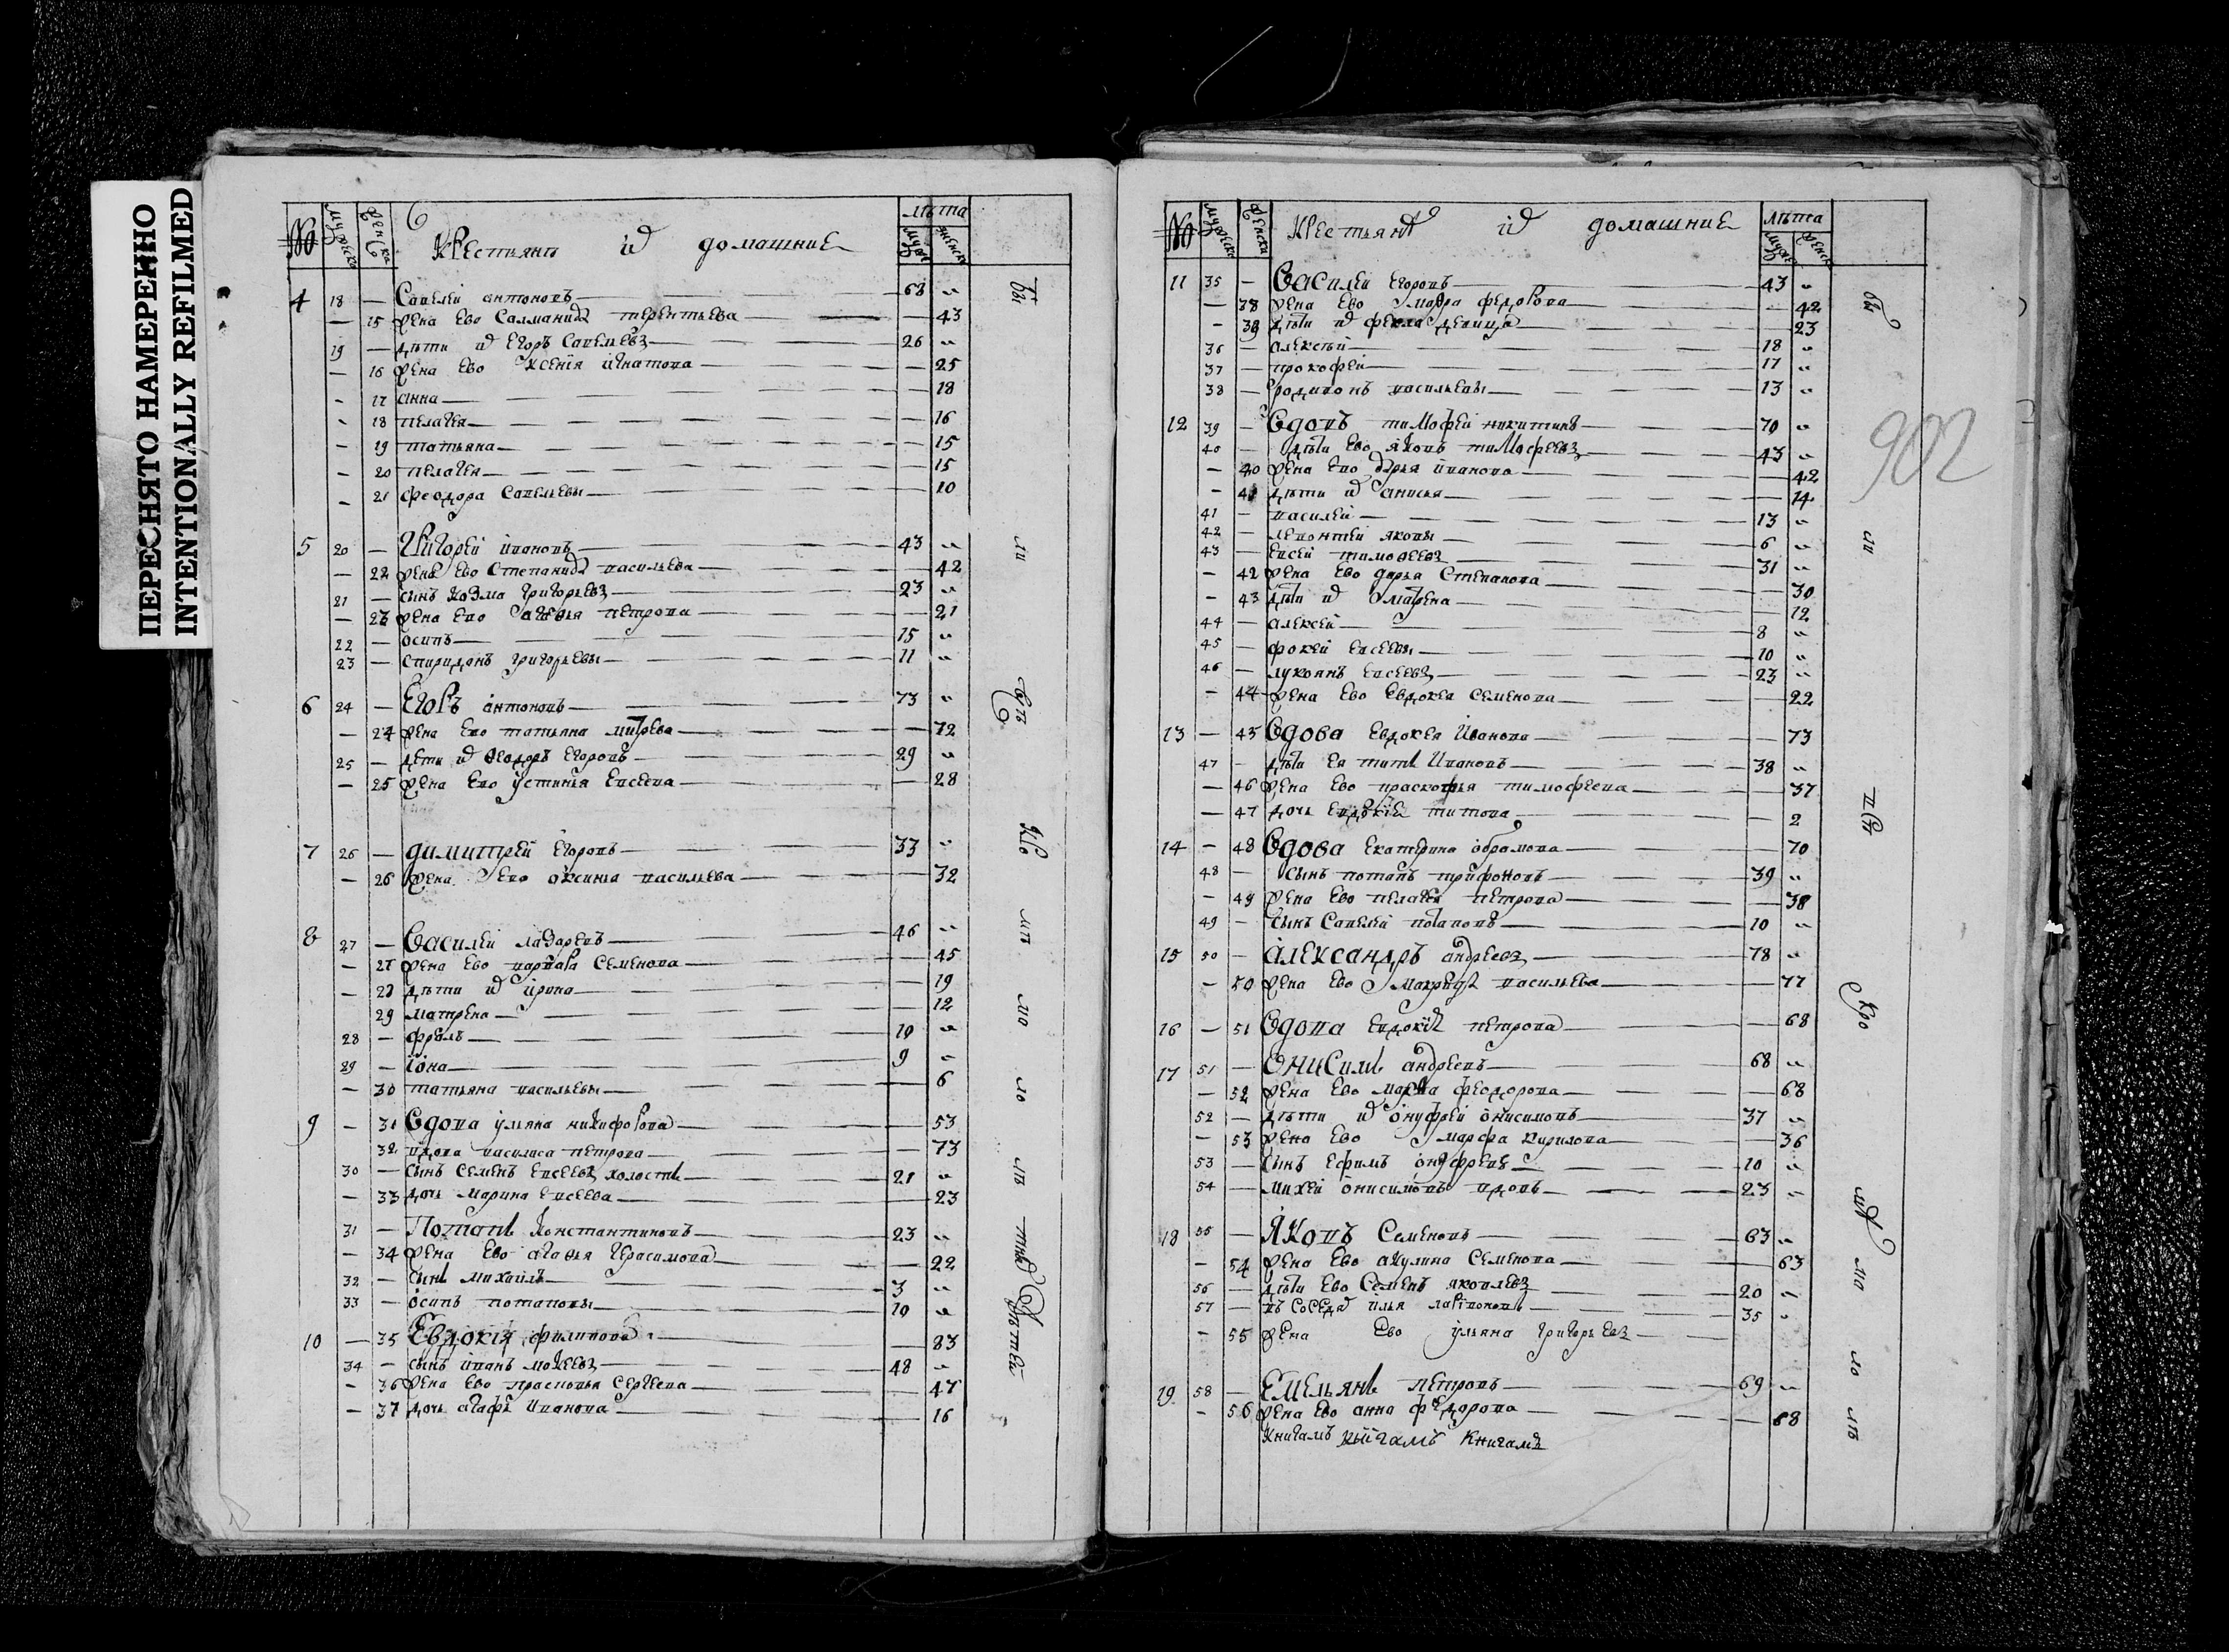 ПЕРЕСНЯТО НАМЕРЕННО
INTENTIONALLY REFILMED
№ мужеска женска крестьянъ и домашние лѣта
мужес женск
4 18 — Савелей антоновъ 68 "
— 15 жена Ево Саламанида терентьева — 43
19 — дѣти их Егоръ Савельевъ 26 "
— 16 жена Ево Ксения игнатова — 25
- 17 анна — 18
- 18 пелагея — 16
- 19 татьяна — 15
- 20 пелагея — 15
- 21 феодора Савельевы — 10
5 20 — Григорей ивановъ 43 "
— 22 жена Ево Степанида васильева — 42
21 — сынъ Козма григорьевъ 23 "
— 23 жена Ево агафья петрова — 21
22 — осипъ 15 "
23 — спиридонъ григорьевы 11 "
6 24 — Егоръ антоновъ 73 "
— 24 жена Ево татьяна митрева — 72
25 — дети их Ѳеодоръ Егоровъ 29 "
— 25 жена Ево устинья Евсеева — 28
7 26 — димитрей Егоровъ 33 "
— 26 жена Ево оксинья васильева — 32
8 27 — Василей лазаревъ 46 "
— 27 жена Ево варвара Семенова — 45
— 28 дѣти их ирина — 19
29 матрена — 12
28 — фролъ 10 "
29 — iона 9 "
— 30 татьяна васильевы — 6
9 — 31 Вдова ульяна никифорова — 53
32 вдова василиса петрова — 73
30 — сынъ Семенъ Евсеевъ холостъ 21 "
— 33 дочь марина Евсеева — 23
31 — Потапъ Константиновъ 23 "
— 34 жена Ево агафья герасимова — 22
32 — сынъ михаилъ 3 "
33 — осипъ потаповы 10 "
10 — 35 Евдокия филипова 83
34 — сынъ иванъ мокеевъ 48 "
- 36 жена Ево прасковья Сергеева — 47
- 37 дочь агафья Иванова — 16
№ мужеска женски крестьянъ их домашние лѣта
мужес женска
11 35 — Василей Егоровъ 43 "
— 38 жена Ево мавра федорова 42
- 39 дѣти их фекла девица 23
36 — алексѣй 18 "
37 — прокофей 17 "
38 — родивонъ васильевы 13 "
902
12 39 — Вдовъ тимофей никитинъ 70 "
40 — дѣти Ево яковъ тимофеевъ 43 "
— 40 жена Ево дарья иванова — 42
- 41 дѣти их анисья — 14
41 — василей 13 "
42 — леонтей яковы 6 "
43 — Евсей тимофеевъ 31 "
- 42 жена Ево дарья Степанова — 30
- 43 дѣти их матрена — 12
44 — алексей 8 "
45 — фокей Евсеевы 10 "
46 — лукоянъ Евсеевъ 23 "
- 44 жена Ево Евдокея семенова — 22
13 — 45 Вдова Евдокея Иванова — 73
47 - дѣти Ея титъ Ивановъ 38 "
— 46 жена Ево праскофья тимофеева — 37
— 47 дочь Евдокия титова — 2
14 — 48 Вдова Екатерина абрамова — 70
48 — сынъ потапъ трифоновъ 39 "
— 49 жена Ево пелагея петрова — 38
49 - сынъ Савелей потаповъ 10 "
15 50 - александръ андреевъ 78 "
- 50 жена Ево макрида васильева — 77
16 — 51 Вдова Евдокия петрова — 68
17 51 — Онисимъ андреевъ 68 "
— 52 жена Ево марья феодорова — 68
52 — дѣти их онуфрей онисимовъ 37 "
- 53 жена Ево марфа кирилова — 36
53 — сынъ Ефимъ онуфревъ 10 "
54 — михей онисимовъ вдовъ 23 "
18 55 — Яковъ Семеновъ 63 "
- 54 жена Ево акулина Семенова — 63
56 — дѣти Ево Семенъ яковлевъ 20 "
57 — въ соседа илья ларивоновъ 35 "
- 55 жена Ево ульяна григорьевъ
19 58 — Емельянъ петровъ 69 "
- 56 жена Ево анна федорова — 68
книгамъ книгамъ книгамъ